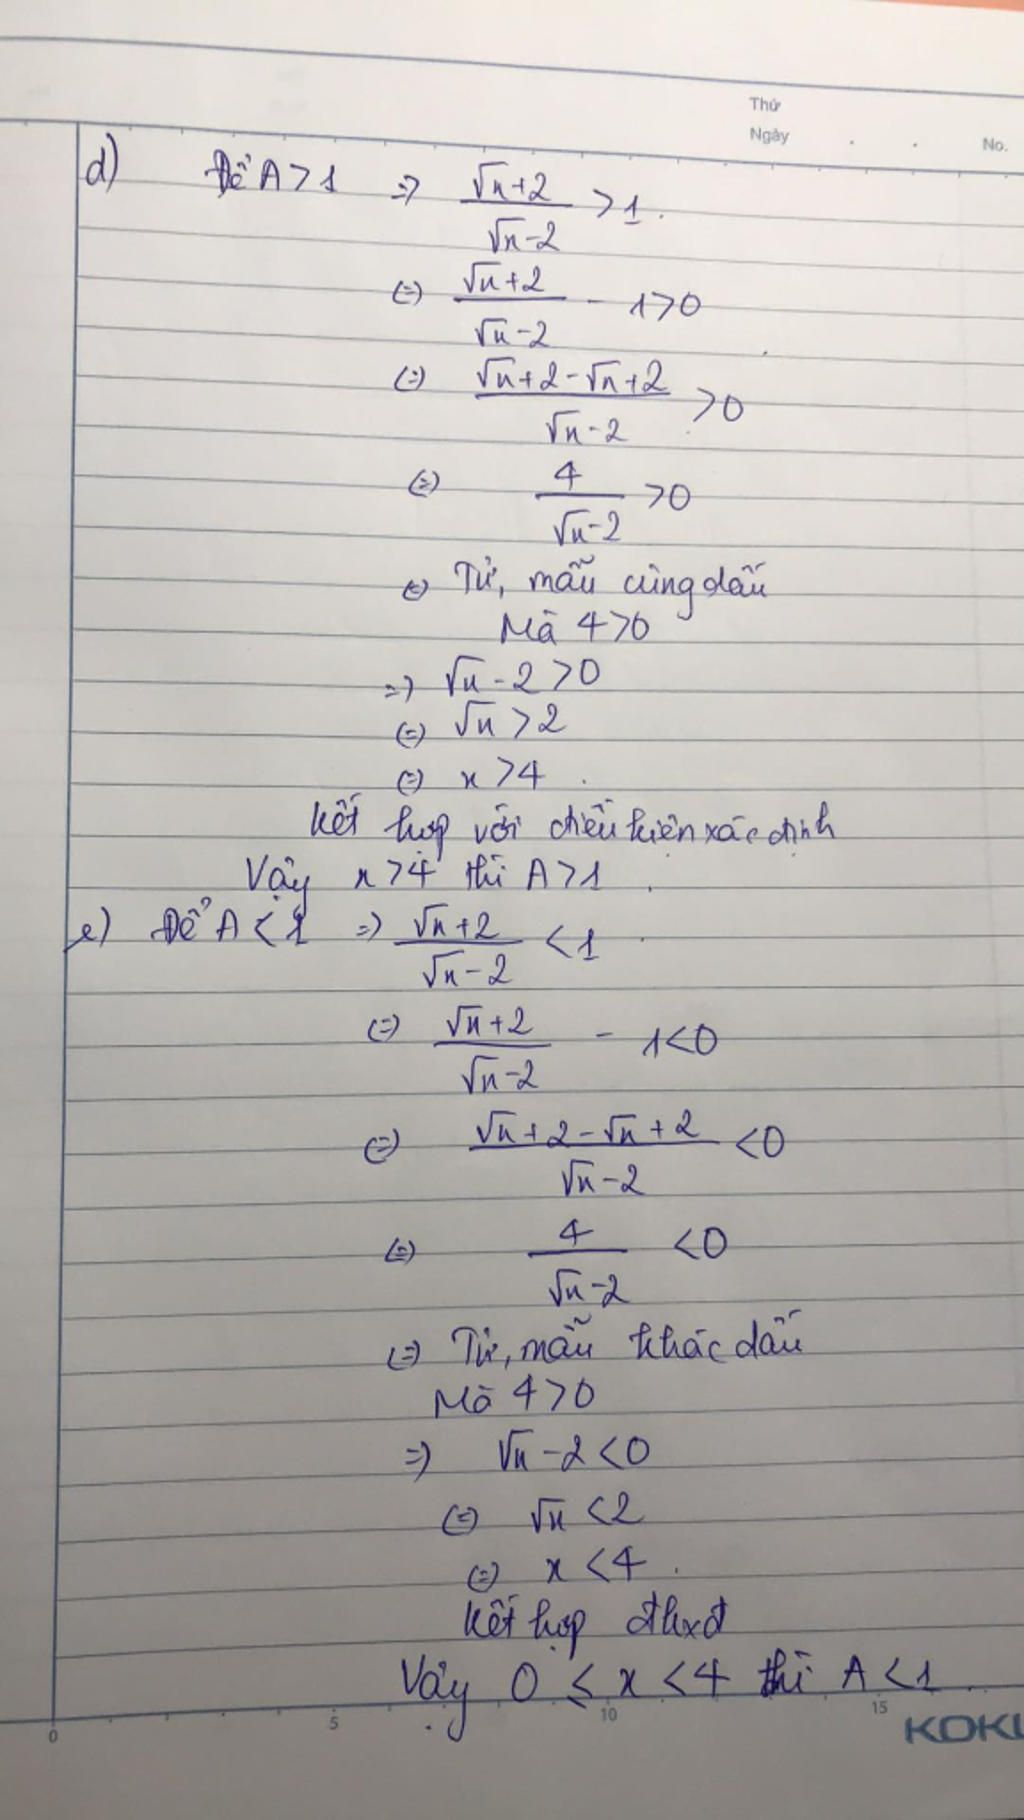 Thứ
Ngày . . No.
d) Để A > 1 => (√x+2)/(√x-2) > 1.
(=) (√x+2)/(√x-2) - 1 > 0
(=) (√x+2-√x+2)/(√x-2) > 0
(=) 4/(√x-2) > 0
(=) Tử, mẫu cùng dấu
Mà 4 > 0
=) √x - 2 > 0
(=) √x > 2
(=) x > 4.
Kết hợp với điều kiện xác định
Vậy x > 4 thì A > 1.
e) Để A < 1 => (√x+2)/(√x-2) < 1.
(=) (√x+2)/(√x-2) - 1 < 0
(=) (√x+2-√x+2)/(√x-2) < 0
(=) 4/(√x-2) < 0
(=) Tử, mẫu khác dấu
Mà 4 > 0
=) √x - 2 < 0
(=) √x < 2
(=) x < 4.
Kết hợp đkxđ
Vậy 0 ≤ x < 4 thì A < 1
0 5 10 15